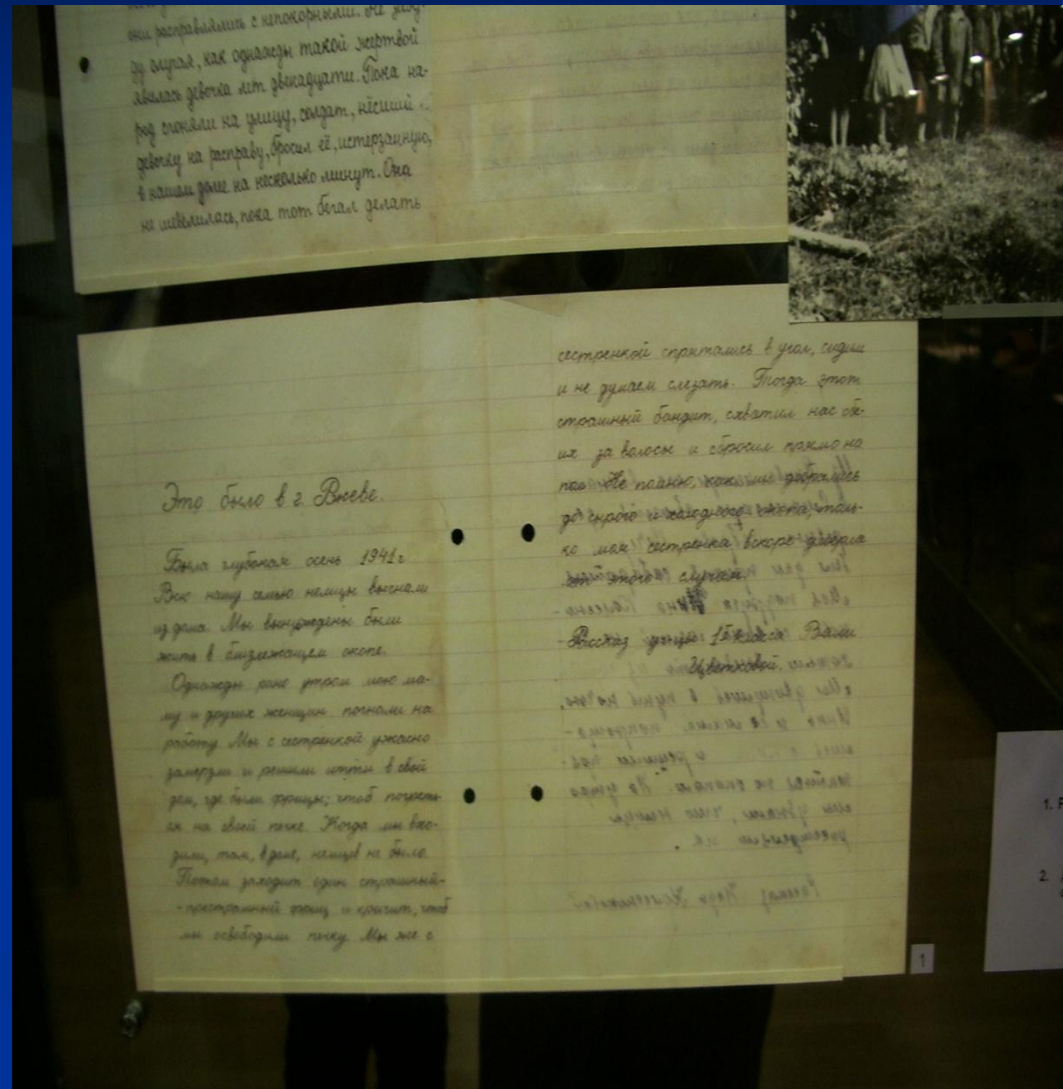 они расправлялись с непокорными. Не забу-
ду случая, как однажды такой жертвой
явилась девочка лет двенадцати. Пока на-
род сгоняли на улицу, солдат, нёсший
девочку на расправу, бросил её, истерзанную,
в нашем доме на несколько минут. Она
не шевелилась, пока тот бегал делать
Это было в г.
Была глубокая осень 1941 г
Всю нашу семью немцы выгнали
из дома. Мы вынуждены были
жить в близлежащем окопе.
Однажды рано утром мою ма-
му и других женщин погнали на
работу. Мы с сестренкой ужасно
замерзли и решили итти в свой
дом, где были фрицы; чтоб погреть-
ся на своей печке. Когда мы вхо-
дили, там, в доме, немцев не было.
Потом заходит один страшный-
-престрашный фриц и кричит, чтоб
мы освободили печку. Мы же с
сестренкой спрятались в угол, сидим
и не думаем слезать. Тогда этот
страшный бандит, схватил нас обе-
их за волосы и сбросил прямо на
пол. Не помню, как мы добрались
до сырого и холодного окопа, толь-
ко моя сестренка вскоре умерла
от этого случая.
Рассказ класса Вали
Цветковой.
1
1.
2.